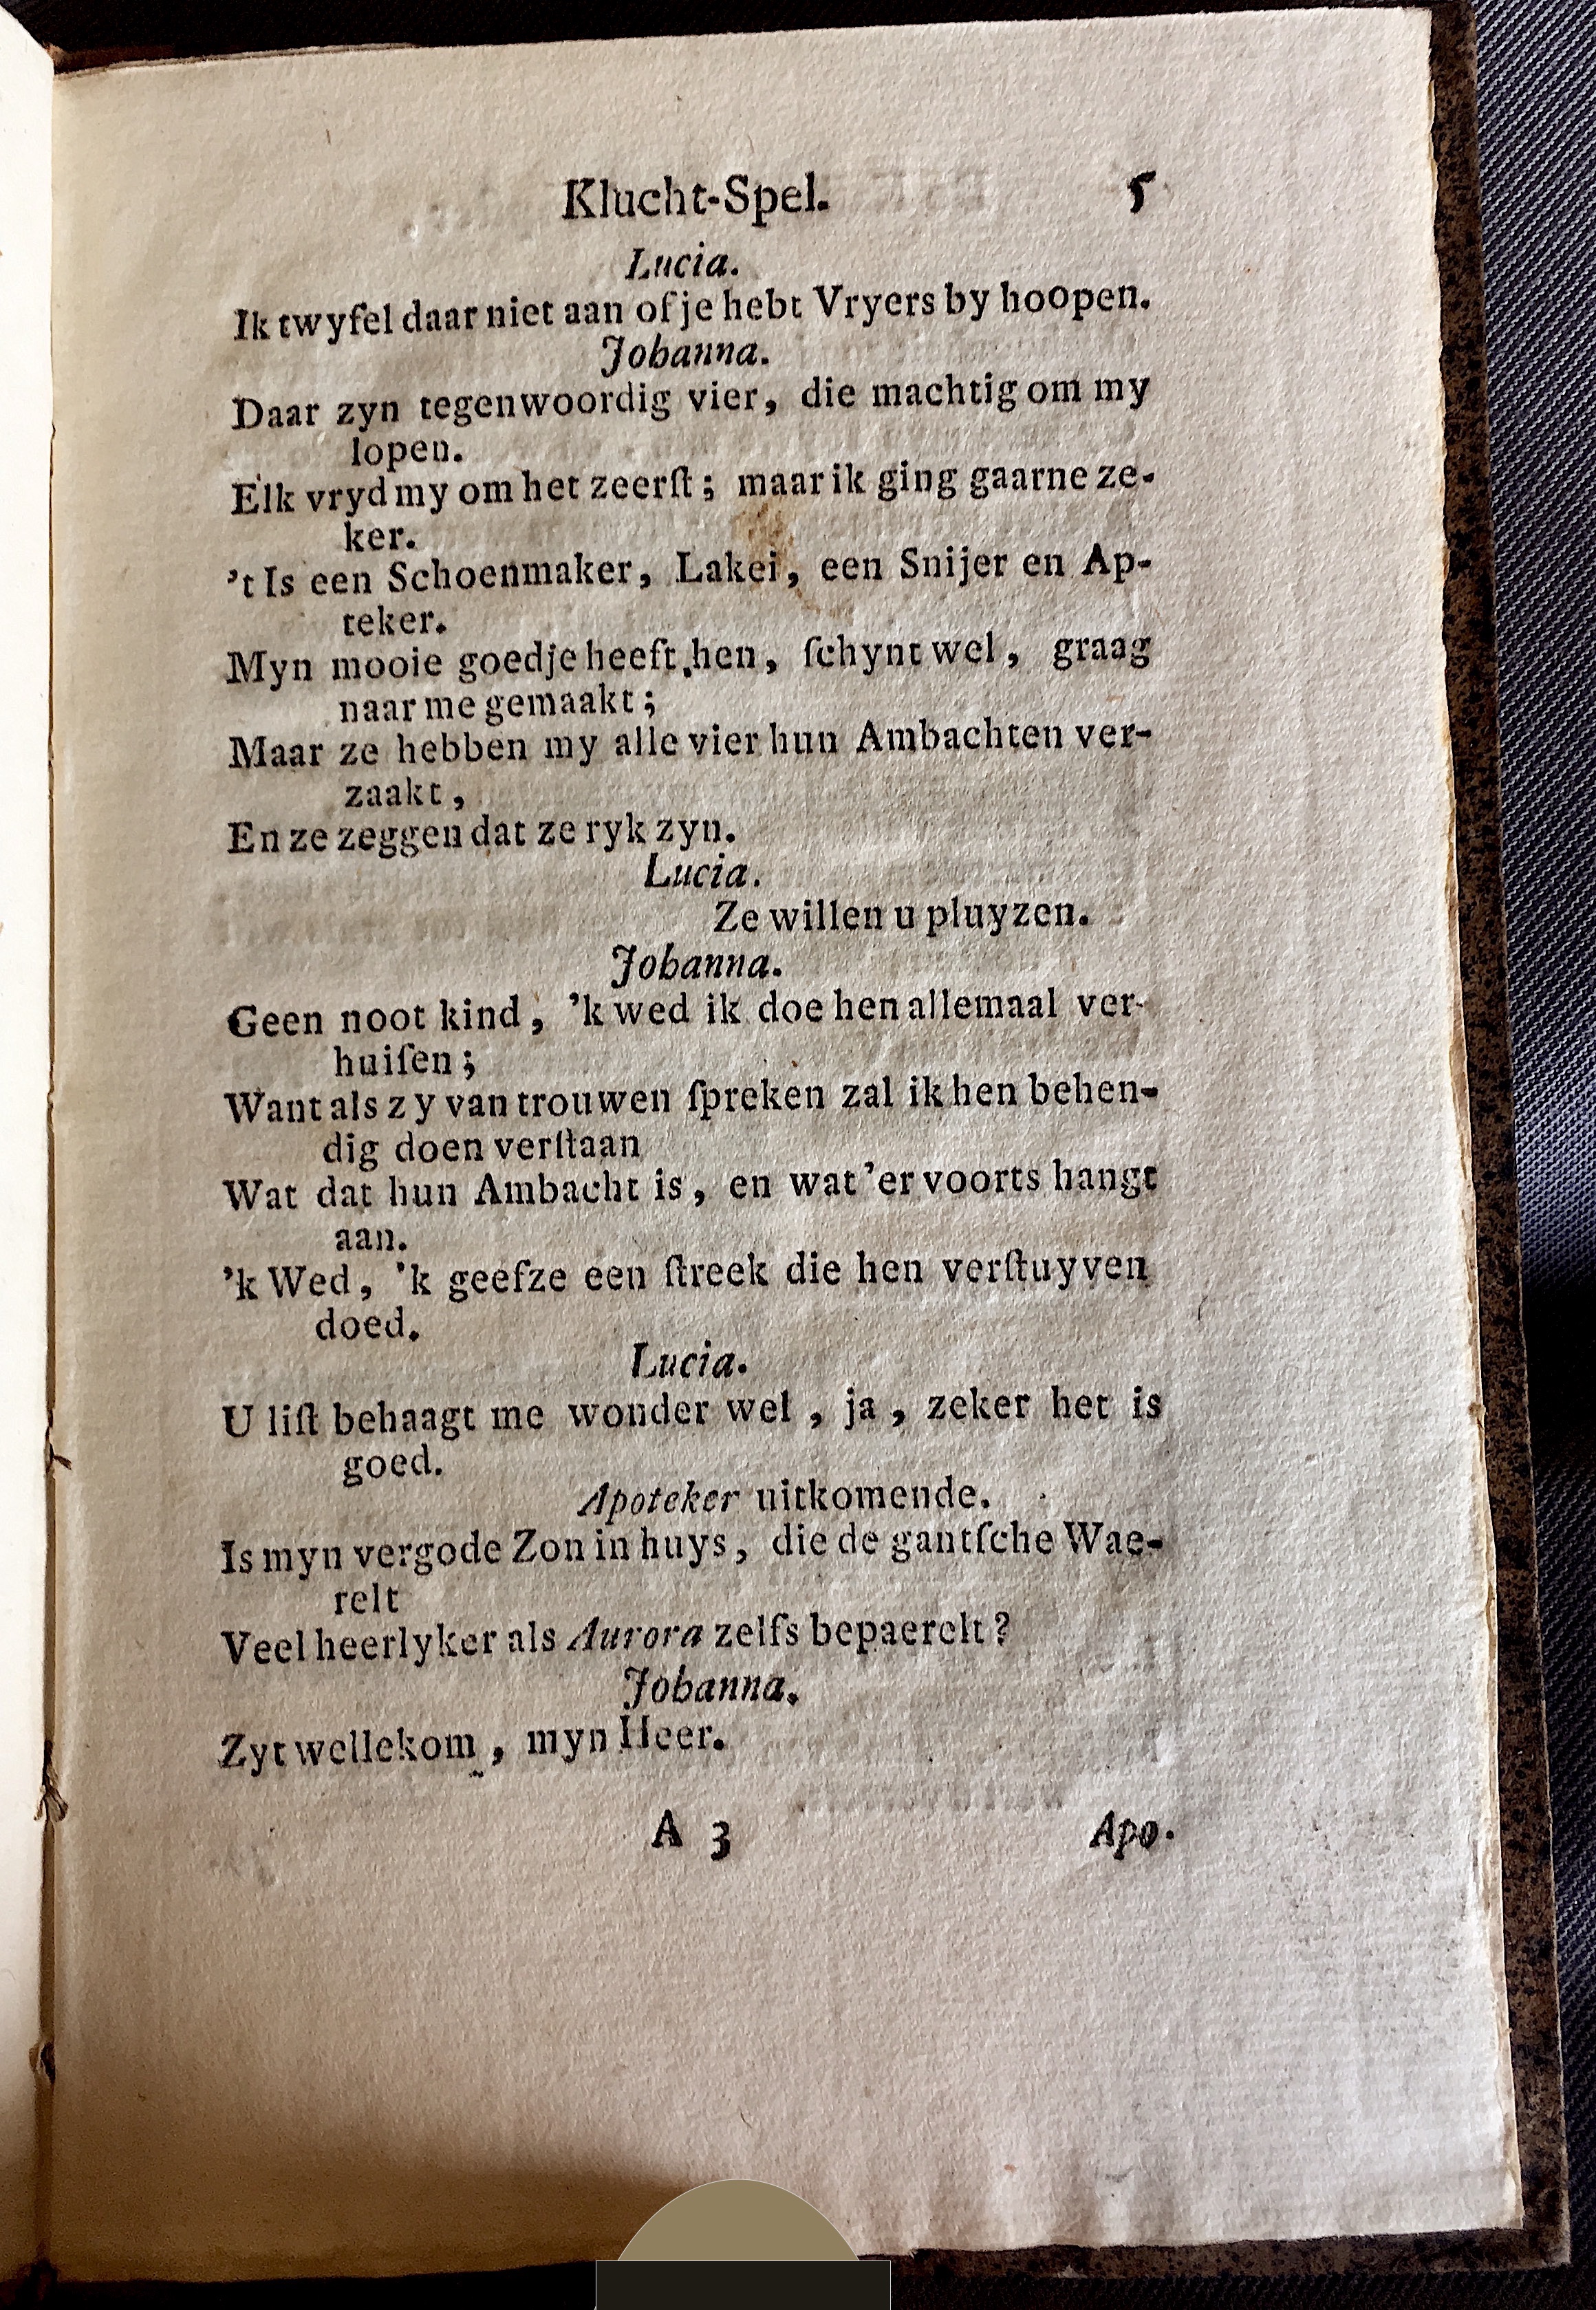 Klucht-Spel. 5
Lucia.
Ik twyfel daar niet aan of je hebt Vryers by hoopen.
Johanna.
Daar zyn tegenwoordig vier, die machtig om my
lopen.
Elk vryd my om het zeerſt; maar ik ging gaarne ze-
ker.
't Is een Schoenmaker, Lakei, een Snijer en Ap-
teker.
Myn mooie goedje heeft hen, ſchynt wel, graag
naar me gemaakt;
Maar ze hebben my alle vier hun Ambachten ver-
zaakt,
En ze zeggen dat ze ryk zyn.
Lucia.
Ze willen u pluyzen.
Johanna.
Geen noot kind, 'k wed ik doe hen allemaal ver-
huiſen;
Want als zy van trouwen ſpreken zal ik hen behen-
dig doen verſtaan
Wat dat hun Ambacht is, en wat 'er voorts hangt
aan.
'k Wed, 'k geefze een ſtreek die hen verſtuyven
doed.
Lucia.
U liſt behaagt me wonder wel, ja, zeker het is
goed.
Apoteker uitkomende.
Is myn vergode Zon in huys, die de gantſche Wae-
relt
Veel heerlyker als Aurora zelfs bepaerelt?
Johanna.
Zyt wellekom, myn Heer.
A 3 Apo-